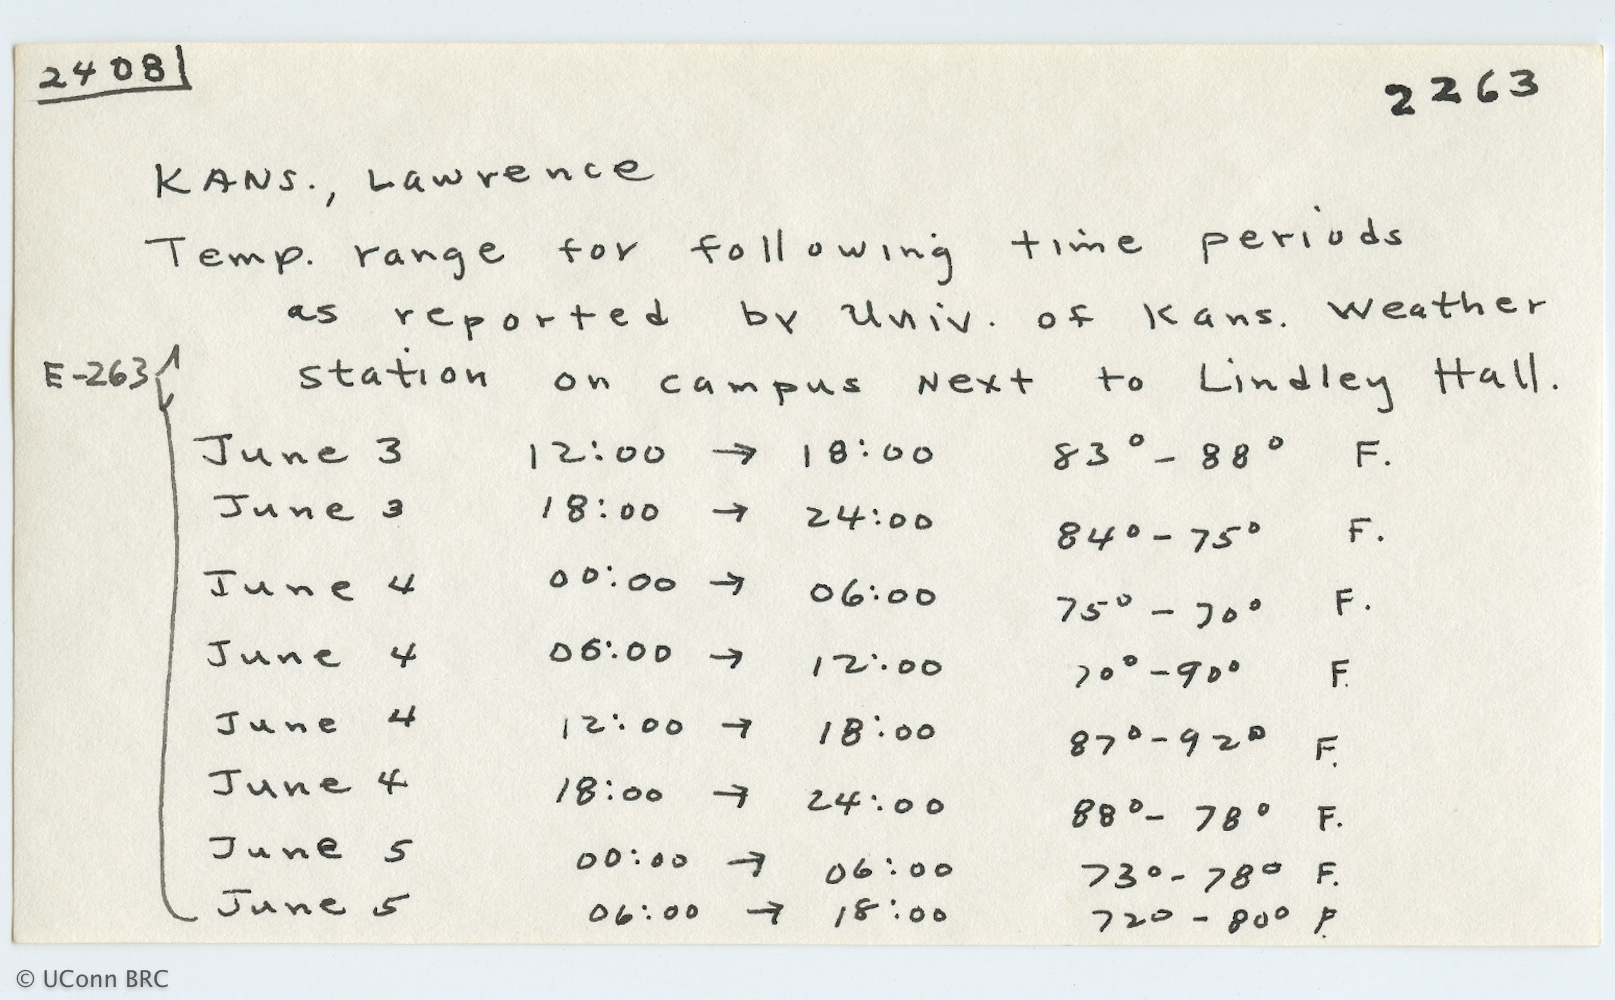 2408
2263
KANS., Lawrence
Temp. range for following time periods
as reported by Univ. of Kans. Weather
E-263
station on campus Next to Lindley Hall.
June 3 12:00 → 18:00 83° - 88° F.
June 3 18:00 → 24:00 84° - 75° F.
June 4 00:00 → 06:00 75° - 70° F.
June 4 06:00 → 12:00 70° - 90° F.
June 4 12:00 → 18:00 87° - 92° F.
June 4 18:00 → 24:00 88° - 78° F.
June 5 00:00 → 06:00 73° - 78° F.
June 5 06:00 → 18:00 72° - 80° F.
© UConn BRC